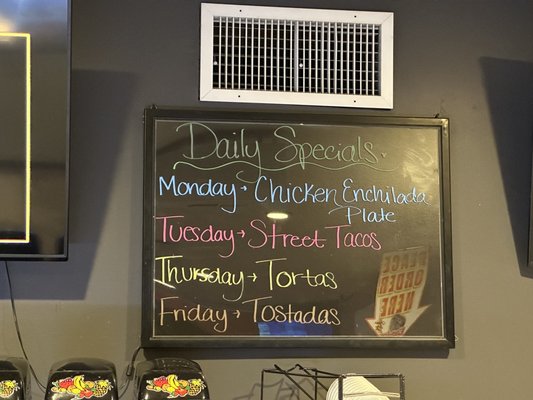 Daily Specials
Monday → Chicken Enchilada
Plate
Tuesday → Street Tacos
Thursday → Tortas
Friday → Tostadas
PLACE
ORDER
HERE